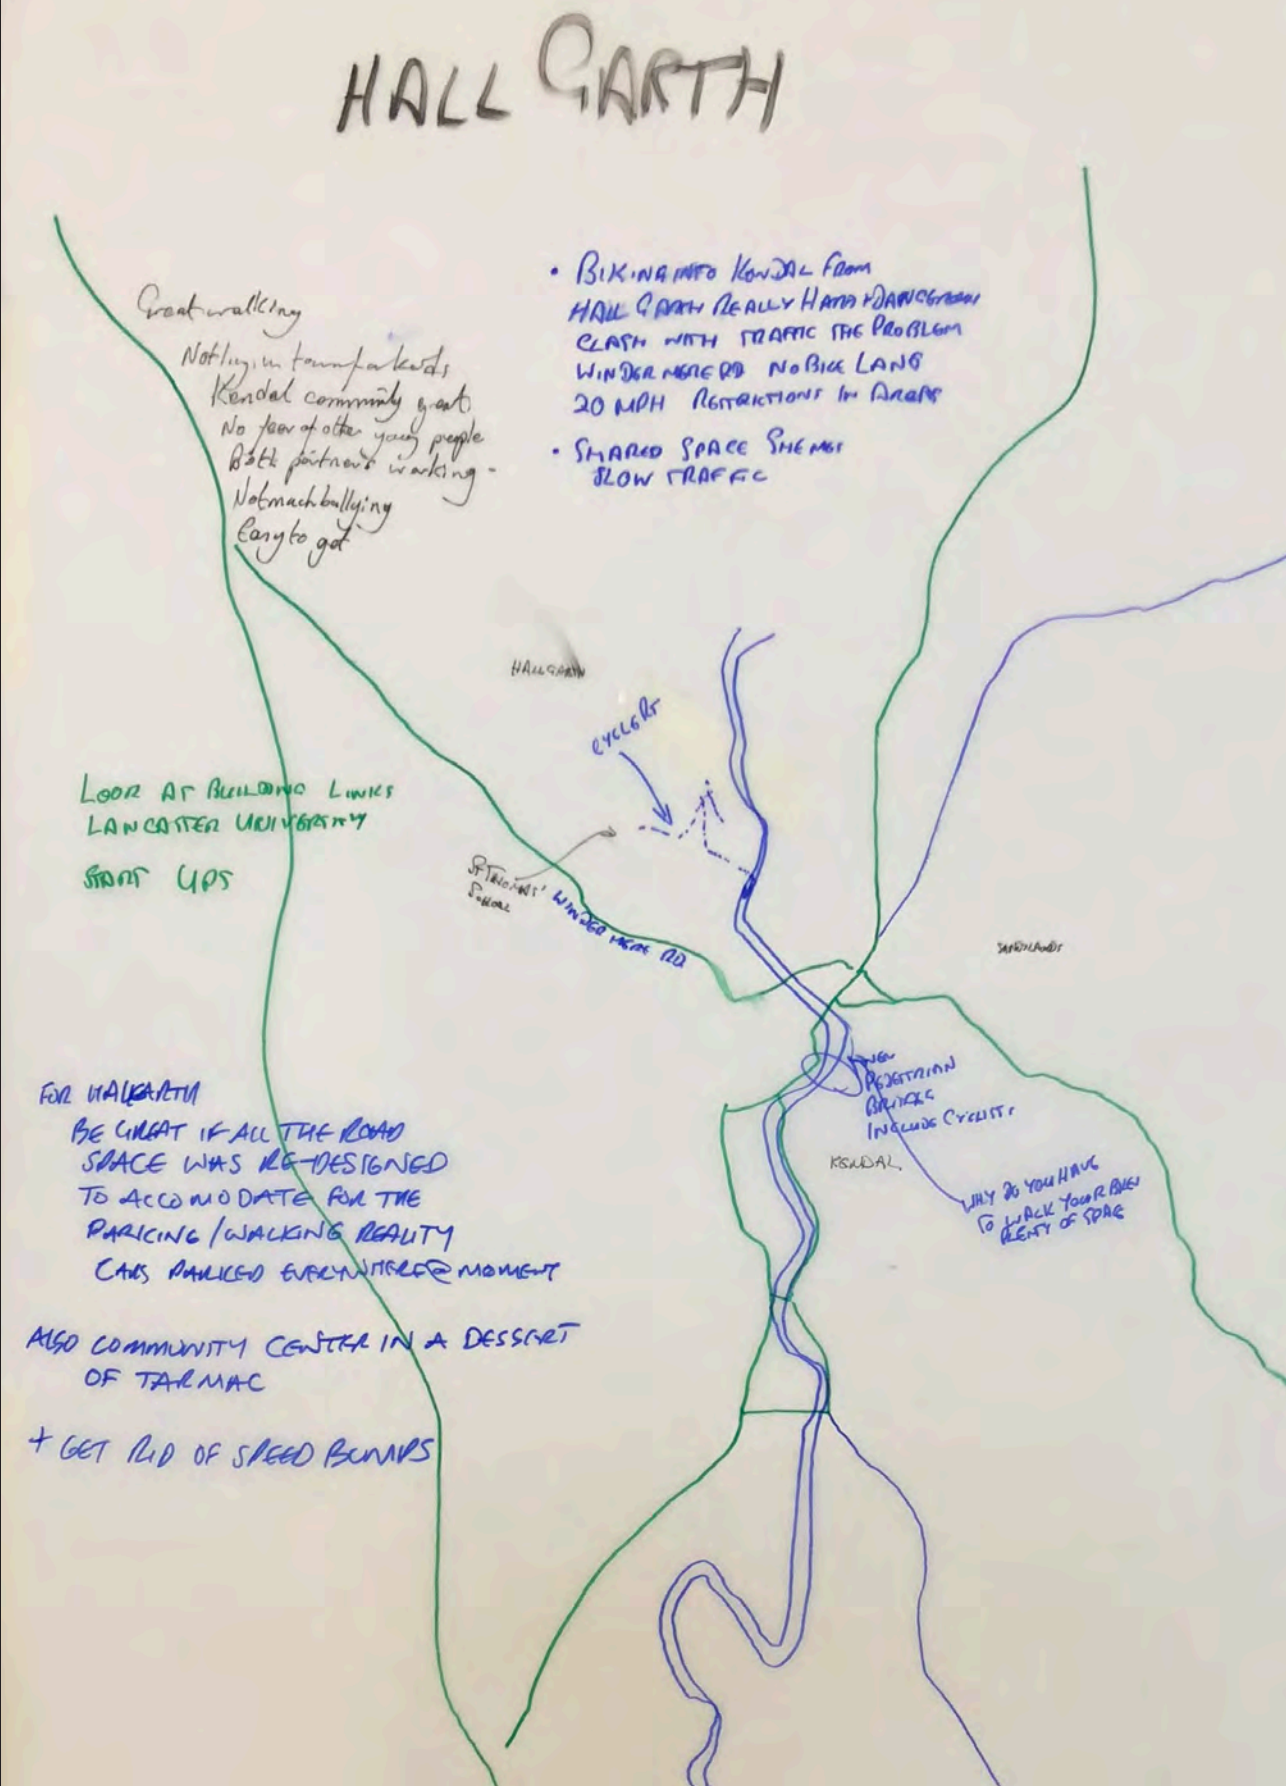 HALL GARTH
Great walking
Nothing in town for kids
Kendal community great
No fear of other young people
Both partners working -
Not much bullying
Easy to get
• BIKING INTO KENDAL FROM
HALL GARTH REALLY HARD + DANGEROUS
CLASH WITH TRAFFIC THE PROBLEM
WINDERMERE RD NO BIKE LANE
20 MPH RESTRICTIONS IN AREAS
• SHARED SPACE SHEMES
SLOW TRAFFIC
HALLGARTH
CYCLE RT
LOOK AT BUILDING LINKS
LANCASTER UNIVERSITY
START UPS
ST THOMAS'
SCHOOL
WINDERMERE RD
SANDYLANDS
NEW
PEDESTRIAN
BRIDGE
INCLUDE CYCLISTS
KENDAL
WHY DO YOU HAVE
TO WALK YOUR BIKE
PLENTY OF SPACE
FOR HALLGARTH
BE GREAT IF ALL THE ROAD
SPACE WAS RE-DESIGNED
TO ACCOMODATE FOR THE
PARKING/WALKING REALITY
CARS PARKED EVERYWHERE @ MOMENT
ALSO COMMUNITY CENTER IN A DESSERT
OF TARMAC
+ GET RID OF SPEED BUMPS